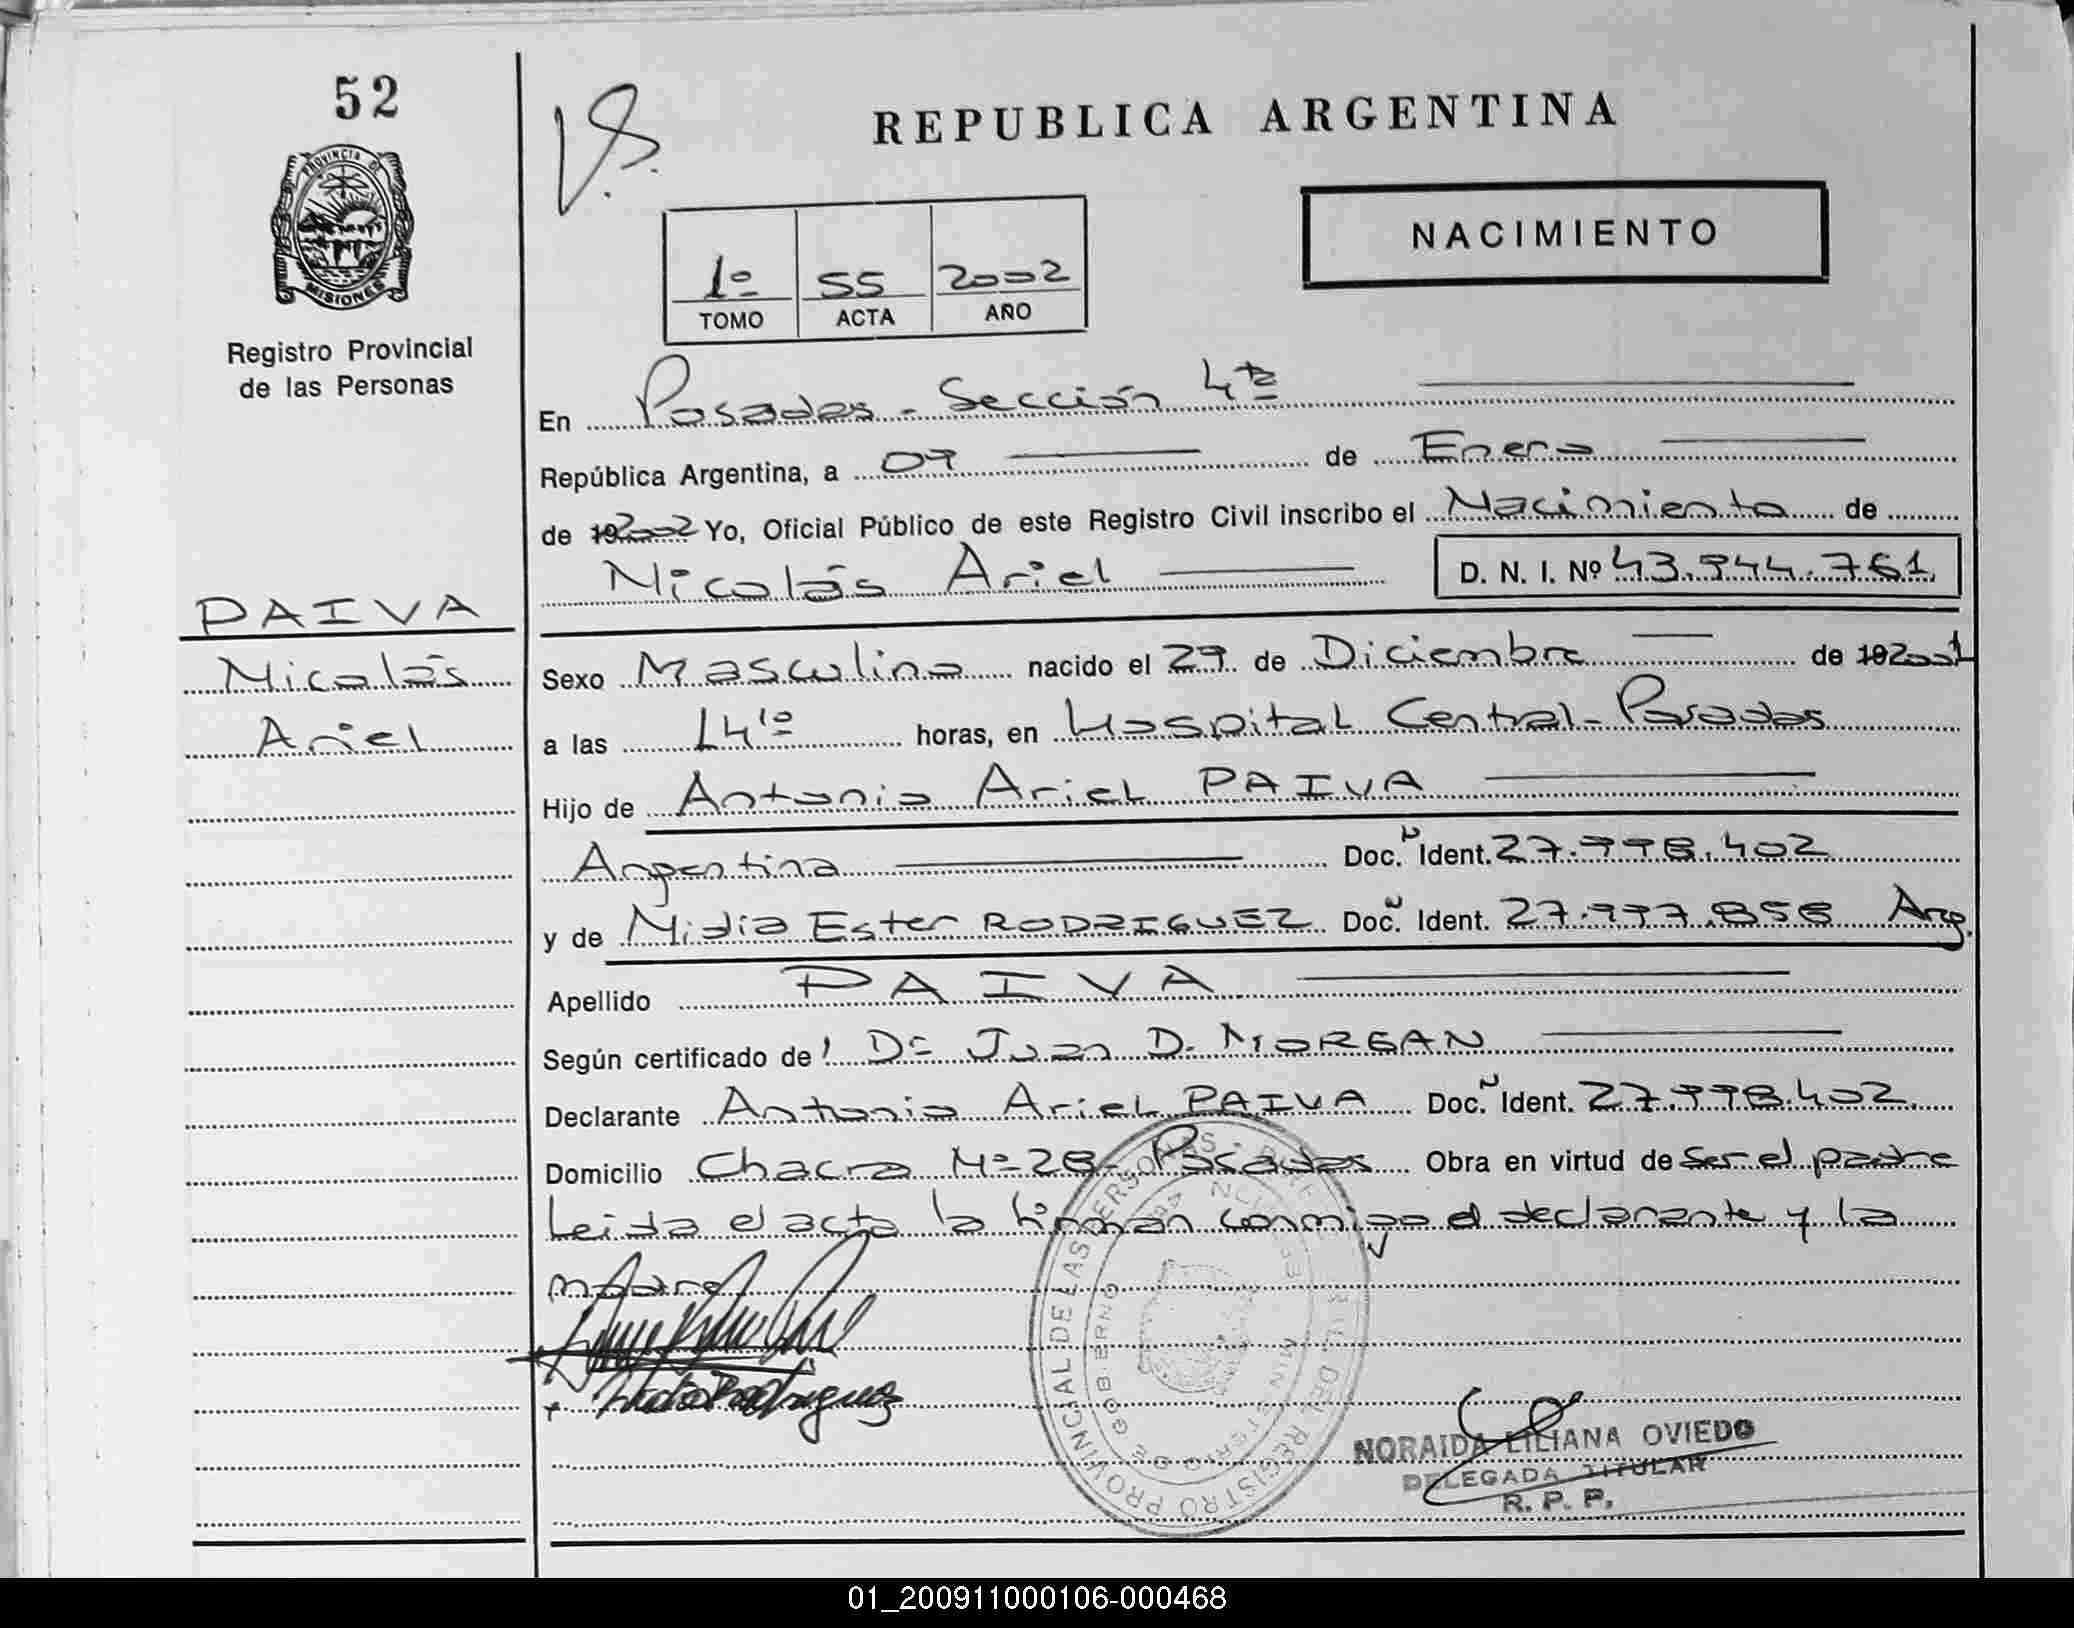 52
PROVINCIA DE
MISIONES
Registro Provincial
de las Personas
PAIVA
Nicolás
Ariel
REPUBLICA ARGENTINA
NACIMIENTO
1º 55 2002
TOMO ACTA AÑO
En Posadas - Sección 4ta
República Argentina, a 07 de Enero
de 2002 Yo, Oficial Público de este Registro Civil inscribo el Nacimiento de
Nicolás Ariel D. N. I. Nº 43.944.761.
Sexo Masculino nacido el 29 de Diciembre de 2001
a las 14,10 horas, en Hospital Central - Posadas
Hijo de Antonio Ariel PAIVA
Argentina Doc. Ident. 27.998.402
y de Nidia Ester RODRIGUEZ Doc. Ident. 27.997.858 Arg.
Apellido PAIVA
Según certificado de: Dr Juan D. MORGAN
Declarante Antonio Ariel PAIVA Doc. Ident. 27.998.402.
Domicilio Chacra Nº 28 - Posadas Obra en virtud de ser el padre
Leida el acta la firman conmigo el declarante y la
madre
Nidia Rodriguez
REGISTRO PROVINCIAL DE LAS PERSONAS
MINISTERIO DE GOBIERNO
NORAIDA LILIANA OVIEDO
DELEGADA TITULAR
R. P. P.
01_200911000106-000468